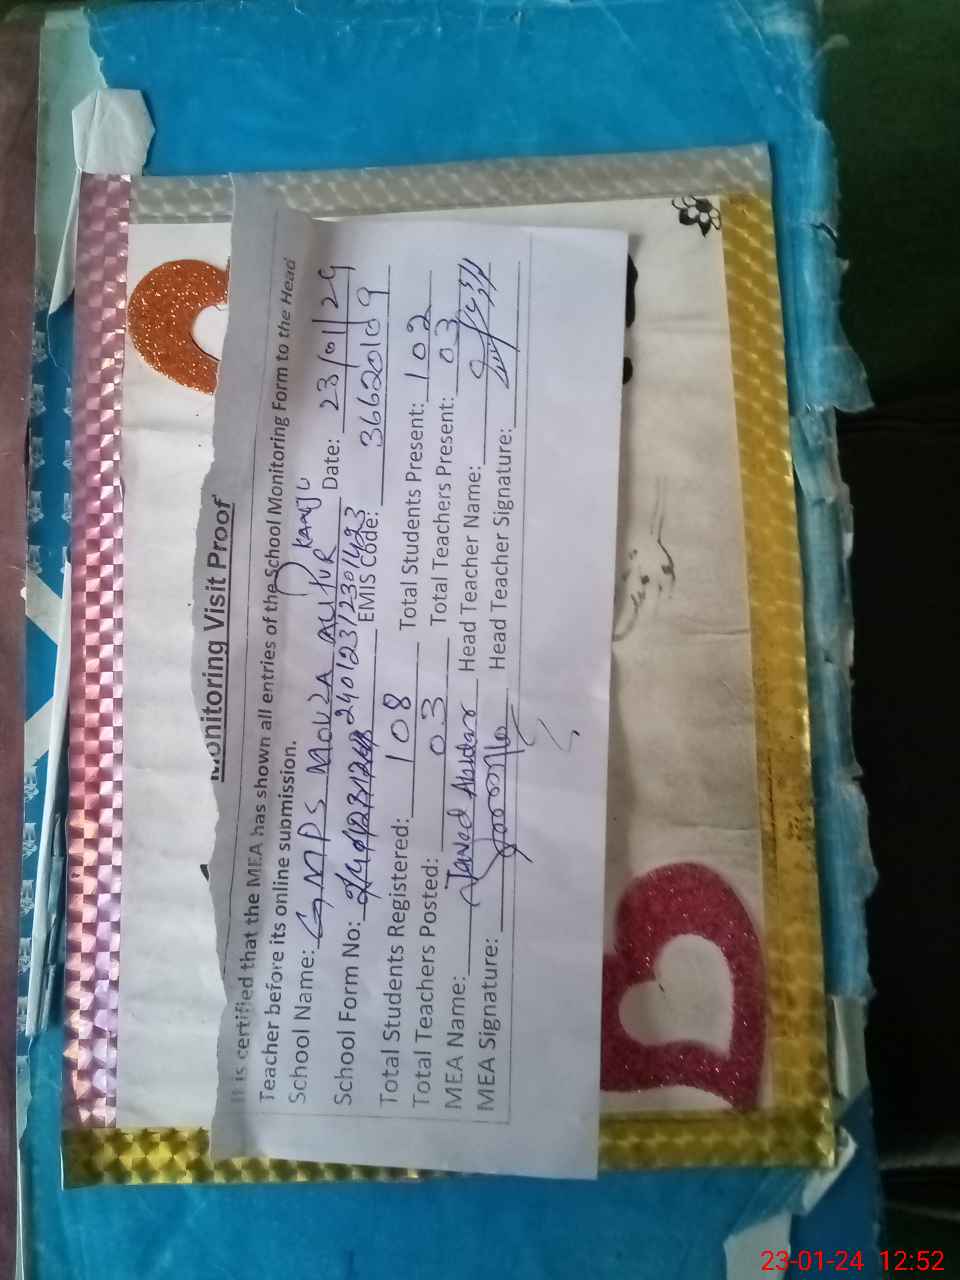 Monitoring Visit Proof
It is certified that the MEA has shown all entries of the School Monitoring Form to the Head
Teacher before its online submission.
School Name: GMPS MOUZA ALIPUR KANJU Date: 23/01/24
School Form No: 240123/230/423 EMIS Code: 36620109
Total Students Registered: 108 Total Students Present: 102
Total Teachers Posted: 03 Total Teachers Present: 03
MEA Name: Javed Head Teacher Name:
MEA Signature: Head Teacher Signature:
23-01-24 12:52